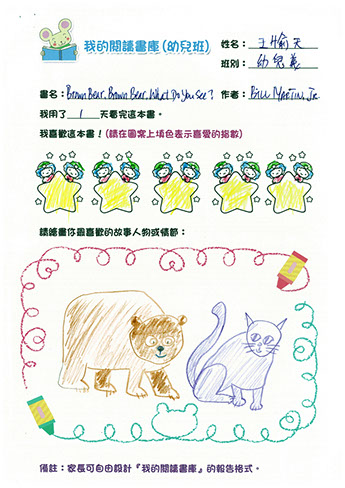 我的閱讀書庫(幼兒班)
姓名：王愉天
班別：幼兒義
書名：Brown Bear, Brown Bear, What Do You See? 作者：Bill Martin, Jr.
我用了 1 天看完這本書。
我喜歡這本書！(請在圖案上填色表示喜愛的指數)
請繪畫你最喜歡的故事人物或情節：
備註：家長可自由設計『我的閱讀書庫』的報告格式。